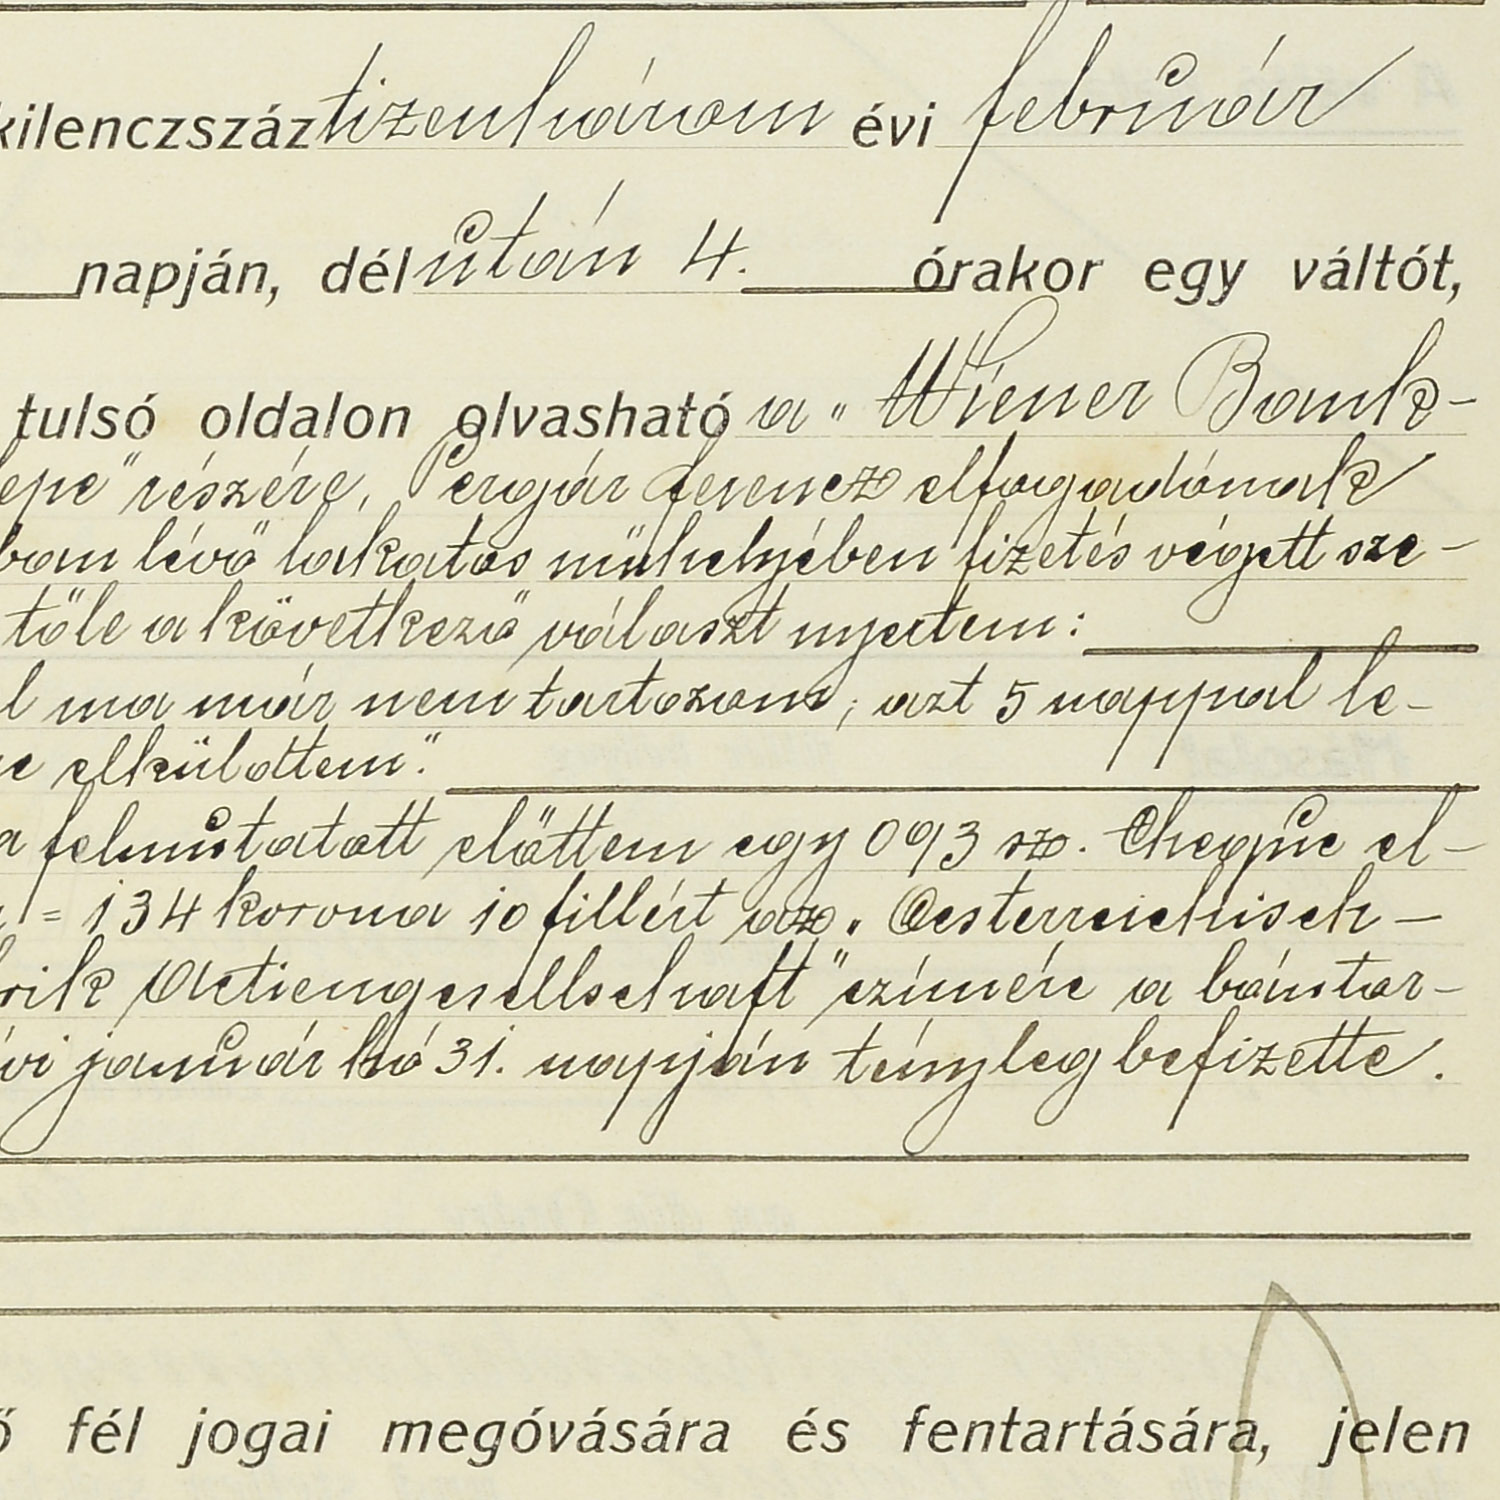 kilenczszáz tizenhárom évi február
napján, délután 4. órakor egy váltót,
tulsó oldalon olvasható a „Wiener Bank-
lepe" részére, Pergár Ferencz elfogadónak
ban lévő lakatos műhelyében fizetés végett sze-
tőle a következő választ nyertem:
l ma már nem tartozom, azt 5 nappal le-
e elküldöttem."
a felmutatott előttem egy 093 sz. Cheque el-
= 134 korona 10 fillért az „Oesterreichisch-
rik Actiengesellschaft" czímére a bántor-
vi január hó 31. napján tényleg befizette.
ő fél jogai megóvására és fentartására, jelen